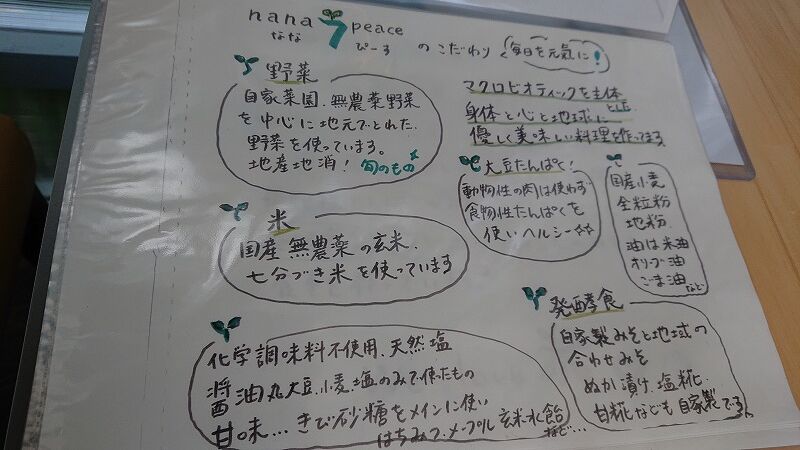 nana peace
なな ぴーす のこだわり 毎日を元気に!
野菜
自家菜園、無農薬野菜
を中心に地元でとれた
野菜を使っています。
地産地消! 旬のもの
マクロビオティックを主体とした
身体と心と地球に
優しく美味しい料理を作ってます
大豆たんぱく!
動物性の肉は使わず
食物性たんぱくを
使いヘルシー☆☆
国産小麦
全粒粉
地粉
油は米油
オリーブ油
ごま油 など
米
国産 無農薬の玄米、
七分づき米を使っています
化学調味料不使用、天然塩
醤油丸大豆、小麦、塩のみで使ったもの
甘味…きび砂糖をメインに使い
はちみつ、メープル 玄米水飴 など…
発酵食
自家製みそと地域の
合わせみそ
ぬか漬け、塩糀、
甘糀なども自家製です。